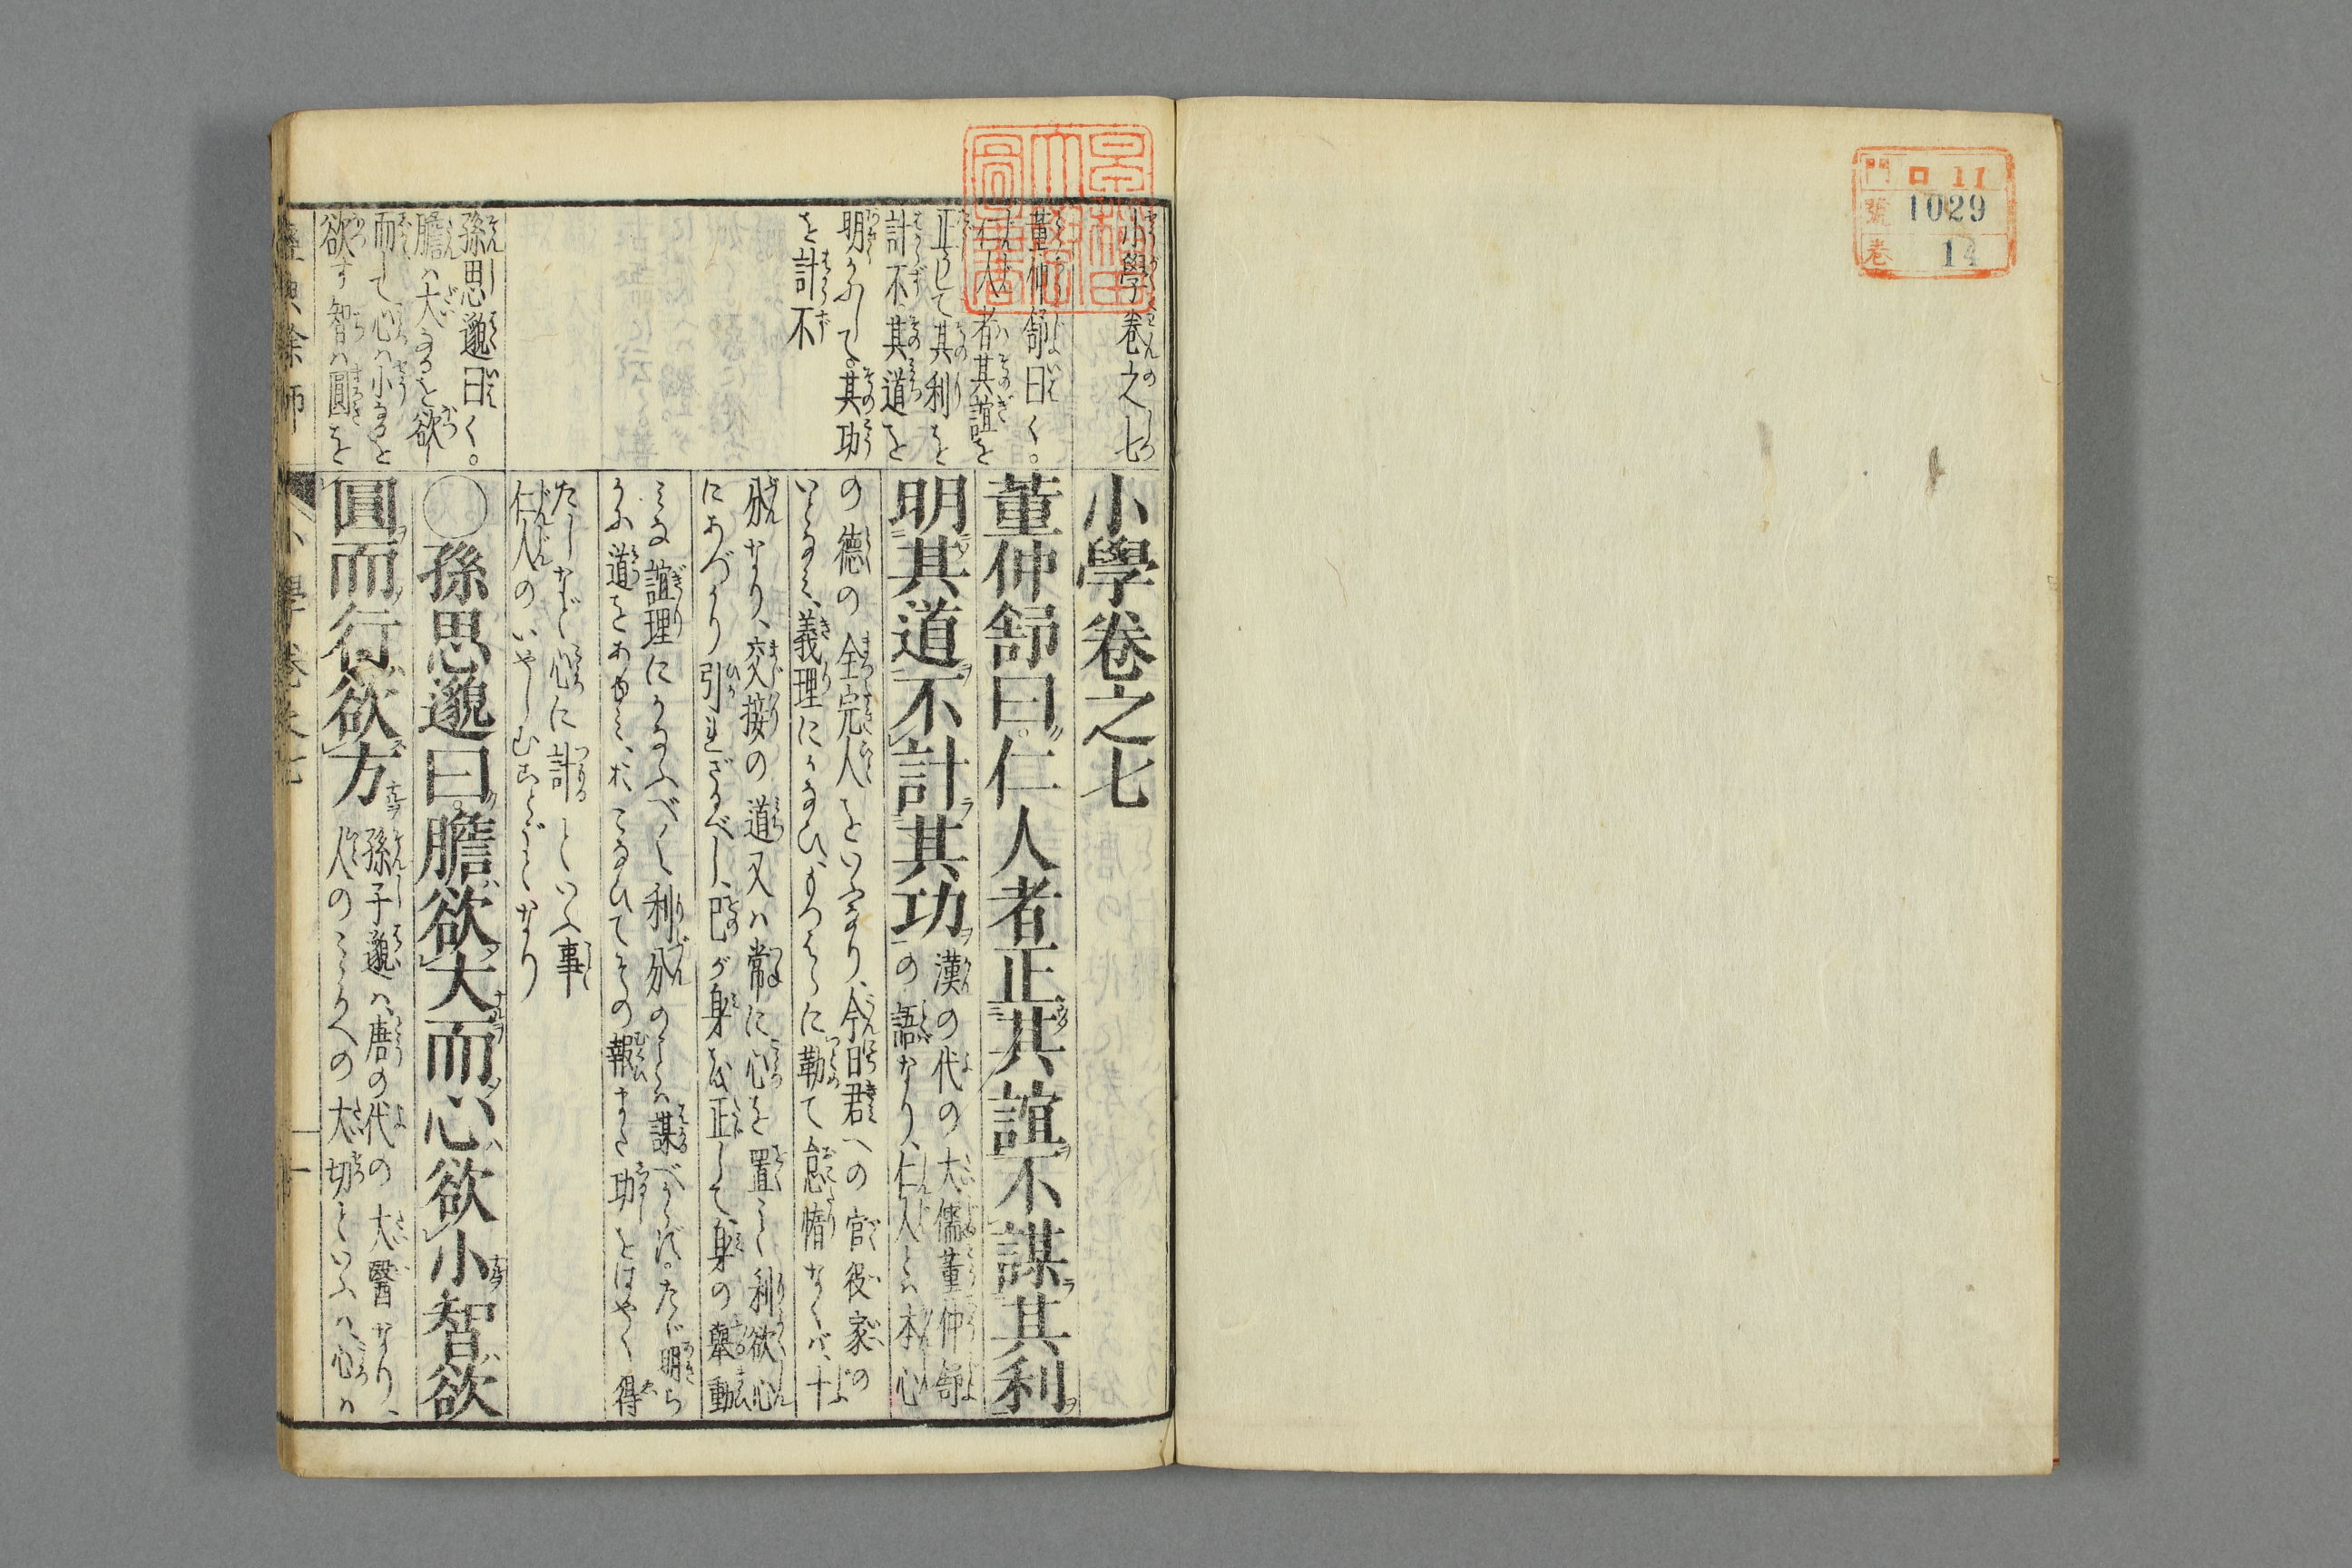 門 ロ 11
號 1029
卷 14
早稲田大學圖書
小學卷之七
董仲舒曰く。
仁人者其誼を
正して其利を
計不其道を
明かふして其功
を計不
孫思邈曰く。
膽ハ大なるを欲
而して心ハ小なるを
欲す智ハ圓を
小學卷之七
董仲舒曰仁人者正其誼不謀其利
明其道不計其功
漢の代の大儒董仲舒
の語なり、仁人とハ本心
の德の全完人をといふなり、今日君への官役家の
義理にかなひ、もつはらに勤て怠惰なくバ、十
分なり、交接の道又ハ常に心を置
利欲心
にあづかり引れざるべし、己が身を正して、身の舉動
みな誼理にかなふべく利分の
謀べからず。たゞ明ら
かふ道をあゆみ、
その報
功をはやく得
たしなど心に計といふ事
仁人のいやしむ
なり
〇孫思邈曰膽欲大而心欲小智欲
圓而行欲方
孫子邈ハ唐の代の大醫なり、
人の
大切といふハ心ハ
經典餘師
小學卷之七
一